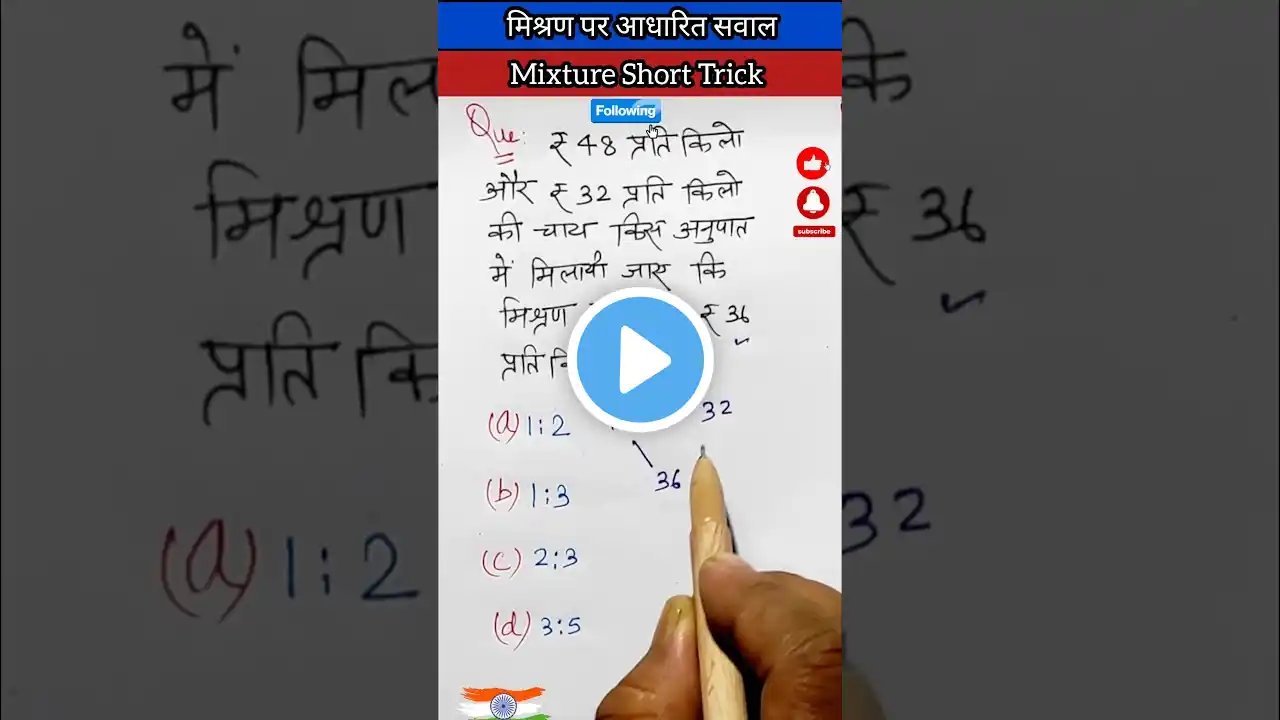 मिश्रण पर आधारित सवाल
Mixture Short Trick
Following
Que: ₹ 48 प्रति किलो
और ₹ 32 प्रति किलो
की चाय किस अनुपात
में मिलायी जाए कि
मिश्रण ₹ 36
प्रति
(a) 1:2
(b) 1:3
(c) 2:3
(d) 3:5
32
36
subscribe
में
मिश्रण
₹ 36
प्रति
(a) 1:2
32